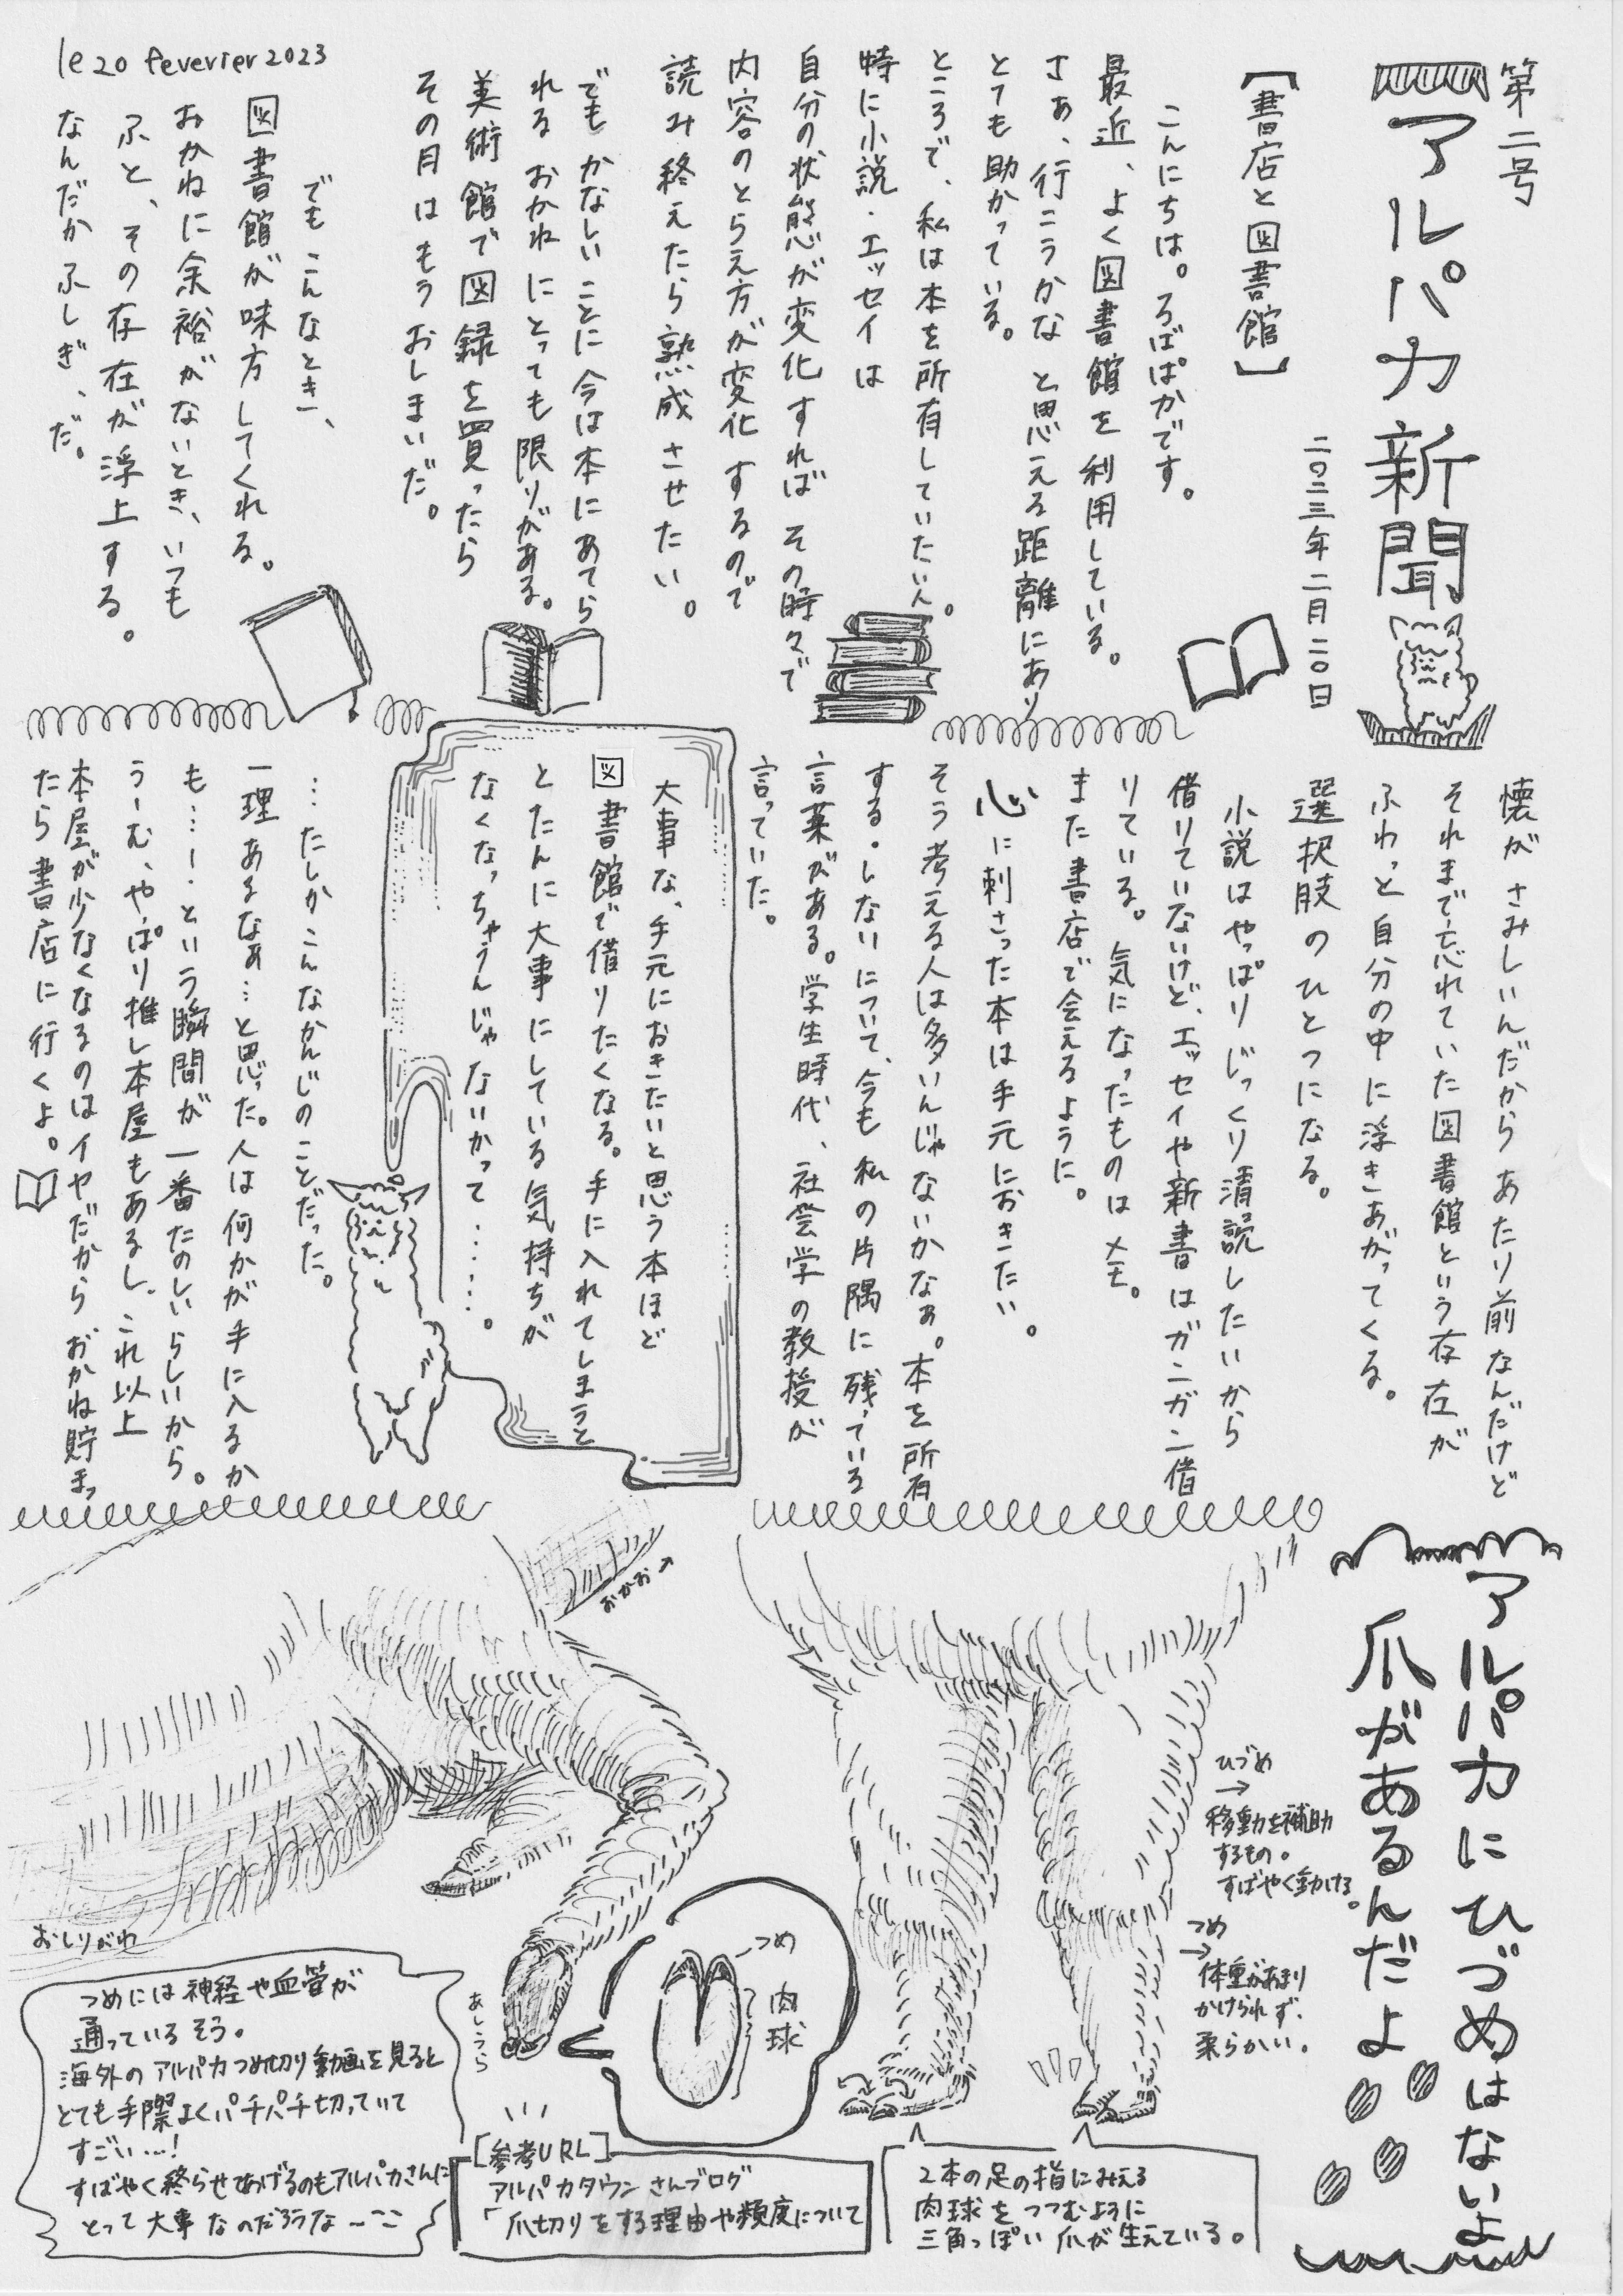 第二号
アルパカ新聞
二〇二三年二月二〇日
【書店と図書館】
こんにちは。ろばぱかです。
最近、よく図書館を利用している。
さぁ、行こうかな と思える距離にあり
とても助かっている。
ところで、私は本を所有していたい人。
特に小説・エッセイは
自分の状態が変化すれば その時々で
内容のとらえ方が変化するので
読み終えたら熟成させたい。
でも かなしいことに 今は本にあてら
れる おかね にとっても限りがある。
美術館で図録を買ったら
その月はもうおしまいだ。
でも こんなとき、
図書館が味方してくれる。
おかねに余裕がないとき、いつも
ふと、その存在が浮上する。
なんだか ふしぎ、だ。
le 20 feverier 2023
懐が さみしいんだから あたり前なんだけど
それまで忘れていた図書館という存在が
ふわっと自分の中に浮きあがってくる。
選択肢のひとつになる。
小説はやっぱりじっくり清読したいから
借りていないけど、エッセイや新書はガンガン借
りている。気になったものはメモ。
また書店で会えるように。
心に刺さった本は手元におきたい。
そう考える人は多いんじゃないかなぁ。本を所有
する・しないについて、今も私の片隅に残っている
言葉がある。学生時代、社会学の教授が
言っていた。
大事な、手元におきたいと思う本ほど
図書館で借りたくなる。手に入れてしまうと
とたんに大事にしている気持ちが
なくなっちゃうんじゃないかって……。
…たしかこんなかんじのことだった。
一理あるなぁ…と思った。人は何かが手に入るか
も…!という瞬間が一番たのしいらしいから。
うーむ、やっぱり推し本屋もあるし、これ以上
本屋が少なくなるのはイヤだから おかね貯まっ
たら書店に行くよ。
アルパカにひづめはないよ
爪があるんだよ
ひづめ
→
移動を補助
するもの。
すばやく動ける。
つめ
→
体重があまり
かけられず、
柔らかい。
2本の足の指にみえる
肉球を つつむように
三角っぽい 爪が生えている。
おかお→
おしりがわ
あしうら
つめ
肉球
[参考URL]
アルパカタウンさんブログ
「爪切りをする理由や頻度について
つめには神経や血管が
通っているそう。
海外のアルパカつめ切り動画を見ると
とても手際よくパチパチ切っていて
すごい…!
すばやく終らせてあげるのもアルパカさんに
とって大事なのだろうな